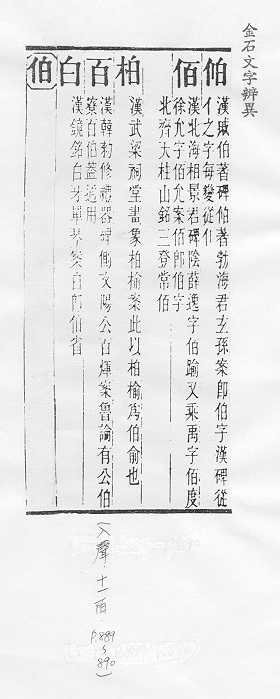 金石文字辨異
伯
漢戚伯著碑伯著勃海君玄孫案即伯字漢碑從
亻之字每變從彳
佰
漢北海相景君碑陰薛逸字佰踰又乘禹字佰度
徐允字佰允案佰即伯字
北齊大柱山銘三登常佰
柏
漢武梁祠堂畫象柏榆案此以柏榆為伯俞也
百
漢韓勑修禮器碑側文陽公百煇案魯論有公伯
寮百伯蓋通用
白
漢鏡銘白牙單琴案白即伯省
伯
(入聲 十一陌
P.889
~
890)